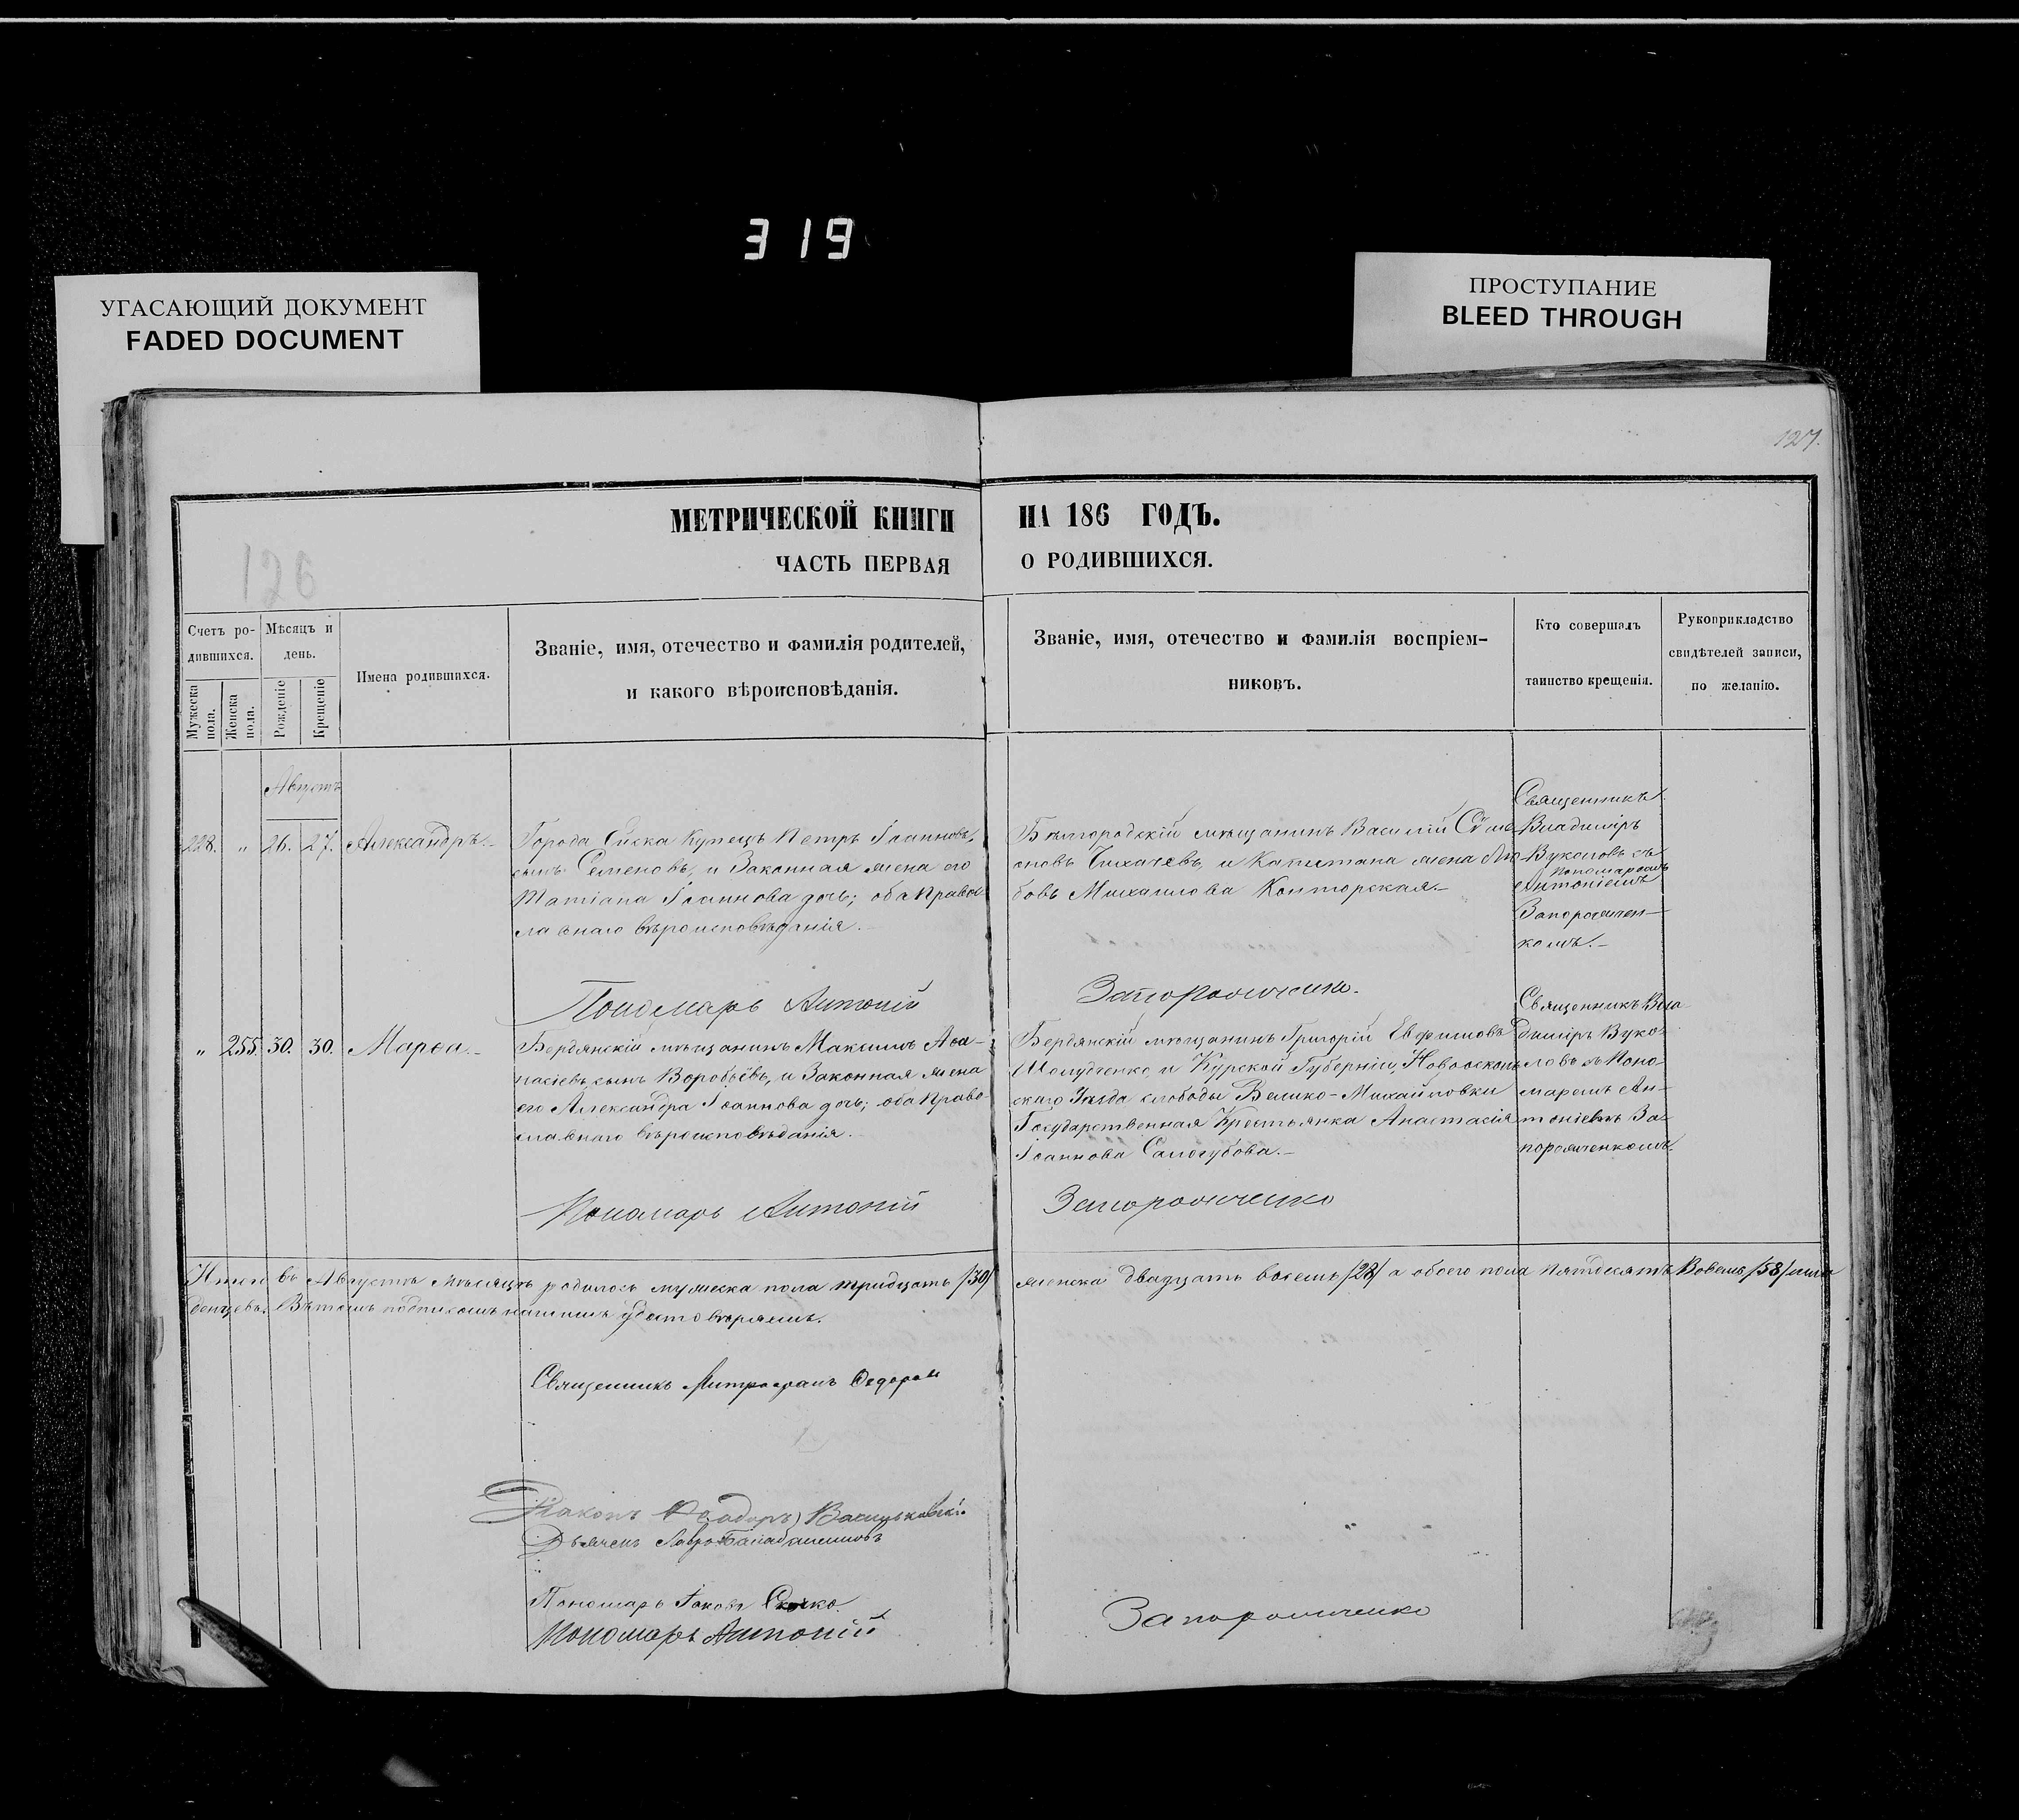 319
УГАСАЮЩИЙ ДОКУМЕНТ
FADED DOCUMENT
ПРОСТУПАНИЕ
BLEED THROUGH
127.
126
МЕТРИЧЕСКОЙ КНИГИ НА 186 ГОДЪ.
ЧАСТЬ ПЕРВАЯ О РОДИВШИХСЯ.
Счетъ ро-
дившихся.
Мужеска
пола.
Женска
пола.
Мѣсяцъ и
день.
Рожденіе
Крещеніе
Имена родившихся.
Званіе, имя, отечество и фамилія родителей,
и какого вѣроисповѣданія.
Званіе, имя, отечество и фамилія воспріем-
никовъ.
Кто совершалъ
таинство крещенія.
Рукоприкладство
свидѣтелей записи,
по желанію.
Августъ
228. " 26. 27. Александръ.-
Города Ейска Купецъ Петръ Іоанновъ,
сынъ Семеновъ, и Законная жена его
Татіана Іоаннова дочь; оба Правос
лавнаго вѣроисповѣданія.
Бѣлгородскій мѣщанинъ Василій Симе
оновъ Тихачевъ, и Капитана жена Лю
бовь Михаилова Конторская.-
Священникъ
Владиміръ
Вуколовъ съ
Пономаремъ
Антоніемъ
Запорожчен-
комъ.-
Пономарь Антоній Запорожченко.
" 255. 30. 30. Марѳа.-
Бердянскій мѣщанинъ Максимъ Аѳа-
насіевъ, сынъ Воробьёвъ, и Законная жена
его Александра Іоаннова дочь; оба Право-
славнаго вѣроисповѣданія.
Бердянскій мѣщанинъ Григорій Евфимовъ
Шолудченко, и Курской Губерніи, Новооскольс
скаго Уѣзда слободы Велико-Михайловки
Государственная Крестьянка Анастасія
Іоаннова Самогубова.-
Священникъ Вла
диміръ Вуко-
ловъ съ Поно-
маремъ Ан-
тоніемъ За-
порожченкомъ.
Пономарь Антоній Запорожченко
Итого въ Августѣ мѣсяцѣ родилось мужеска пола тридцать /30/ женска двадцать восемь /28/ а обоего пола пятдесятъ Восемь /58/ мла
денцевъ. Въ томъ подписомъ нашимъ удостовѣряемъ.
Священникъ Митрофанъ Ѳедоров
Діаконъ Ѳеодоръ Васильковскій
Дьячекъ
Пономарь Іаковъ Скочко.
Пономарь Антоній Запорожченко